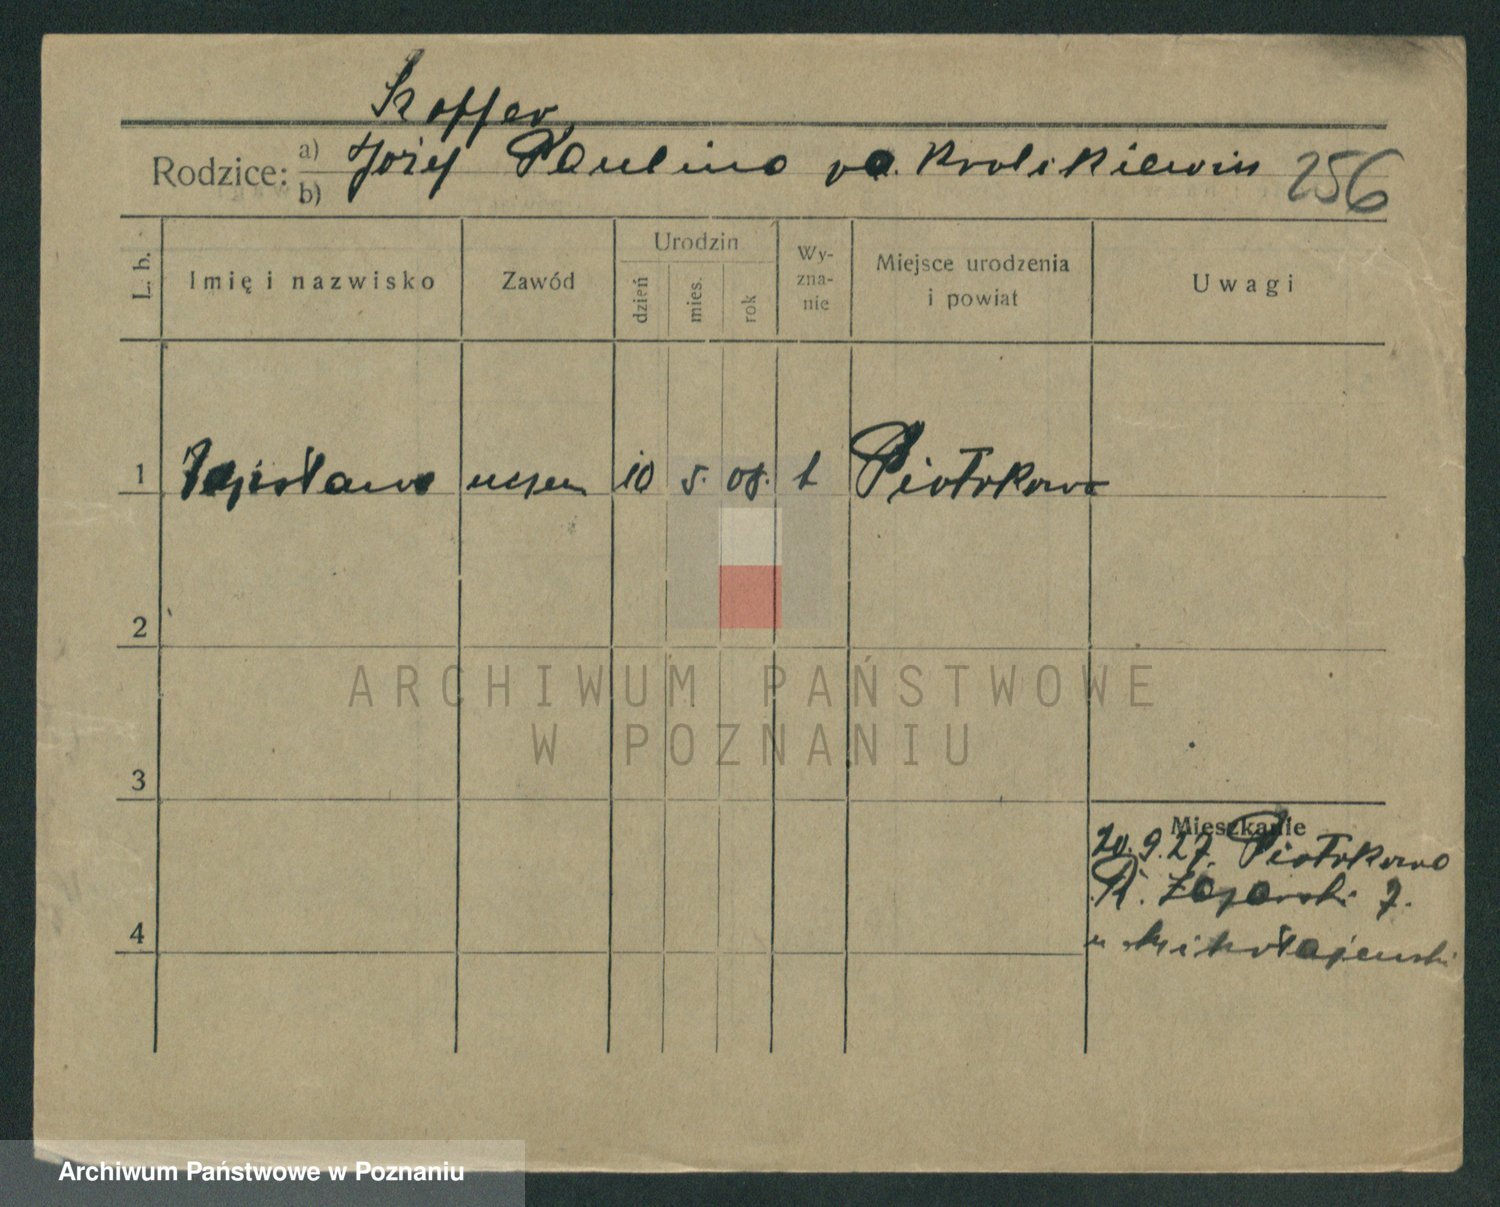 Szoffer
Rodzice: a) Józef Paulina vd. Krolikiewicz 256
b)
L. b. Imię i nazwisko Zawód Urodzin dzień mies. rok Wy-zna-nie Miejsce urodzenia i powiat Uwagi
1 uczen 10 5. 08. k Piotrkowo
2
3
4
Mieszkanie
20.9.27. Piotrkowo
7.
u Mikołajewski
ARCHIWUM PAŃSTWOWE
W POZNANIU
Archiwum Państwowe w Poznaniu